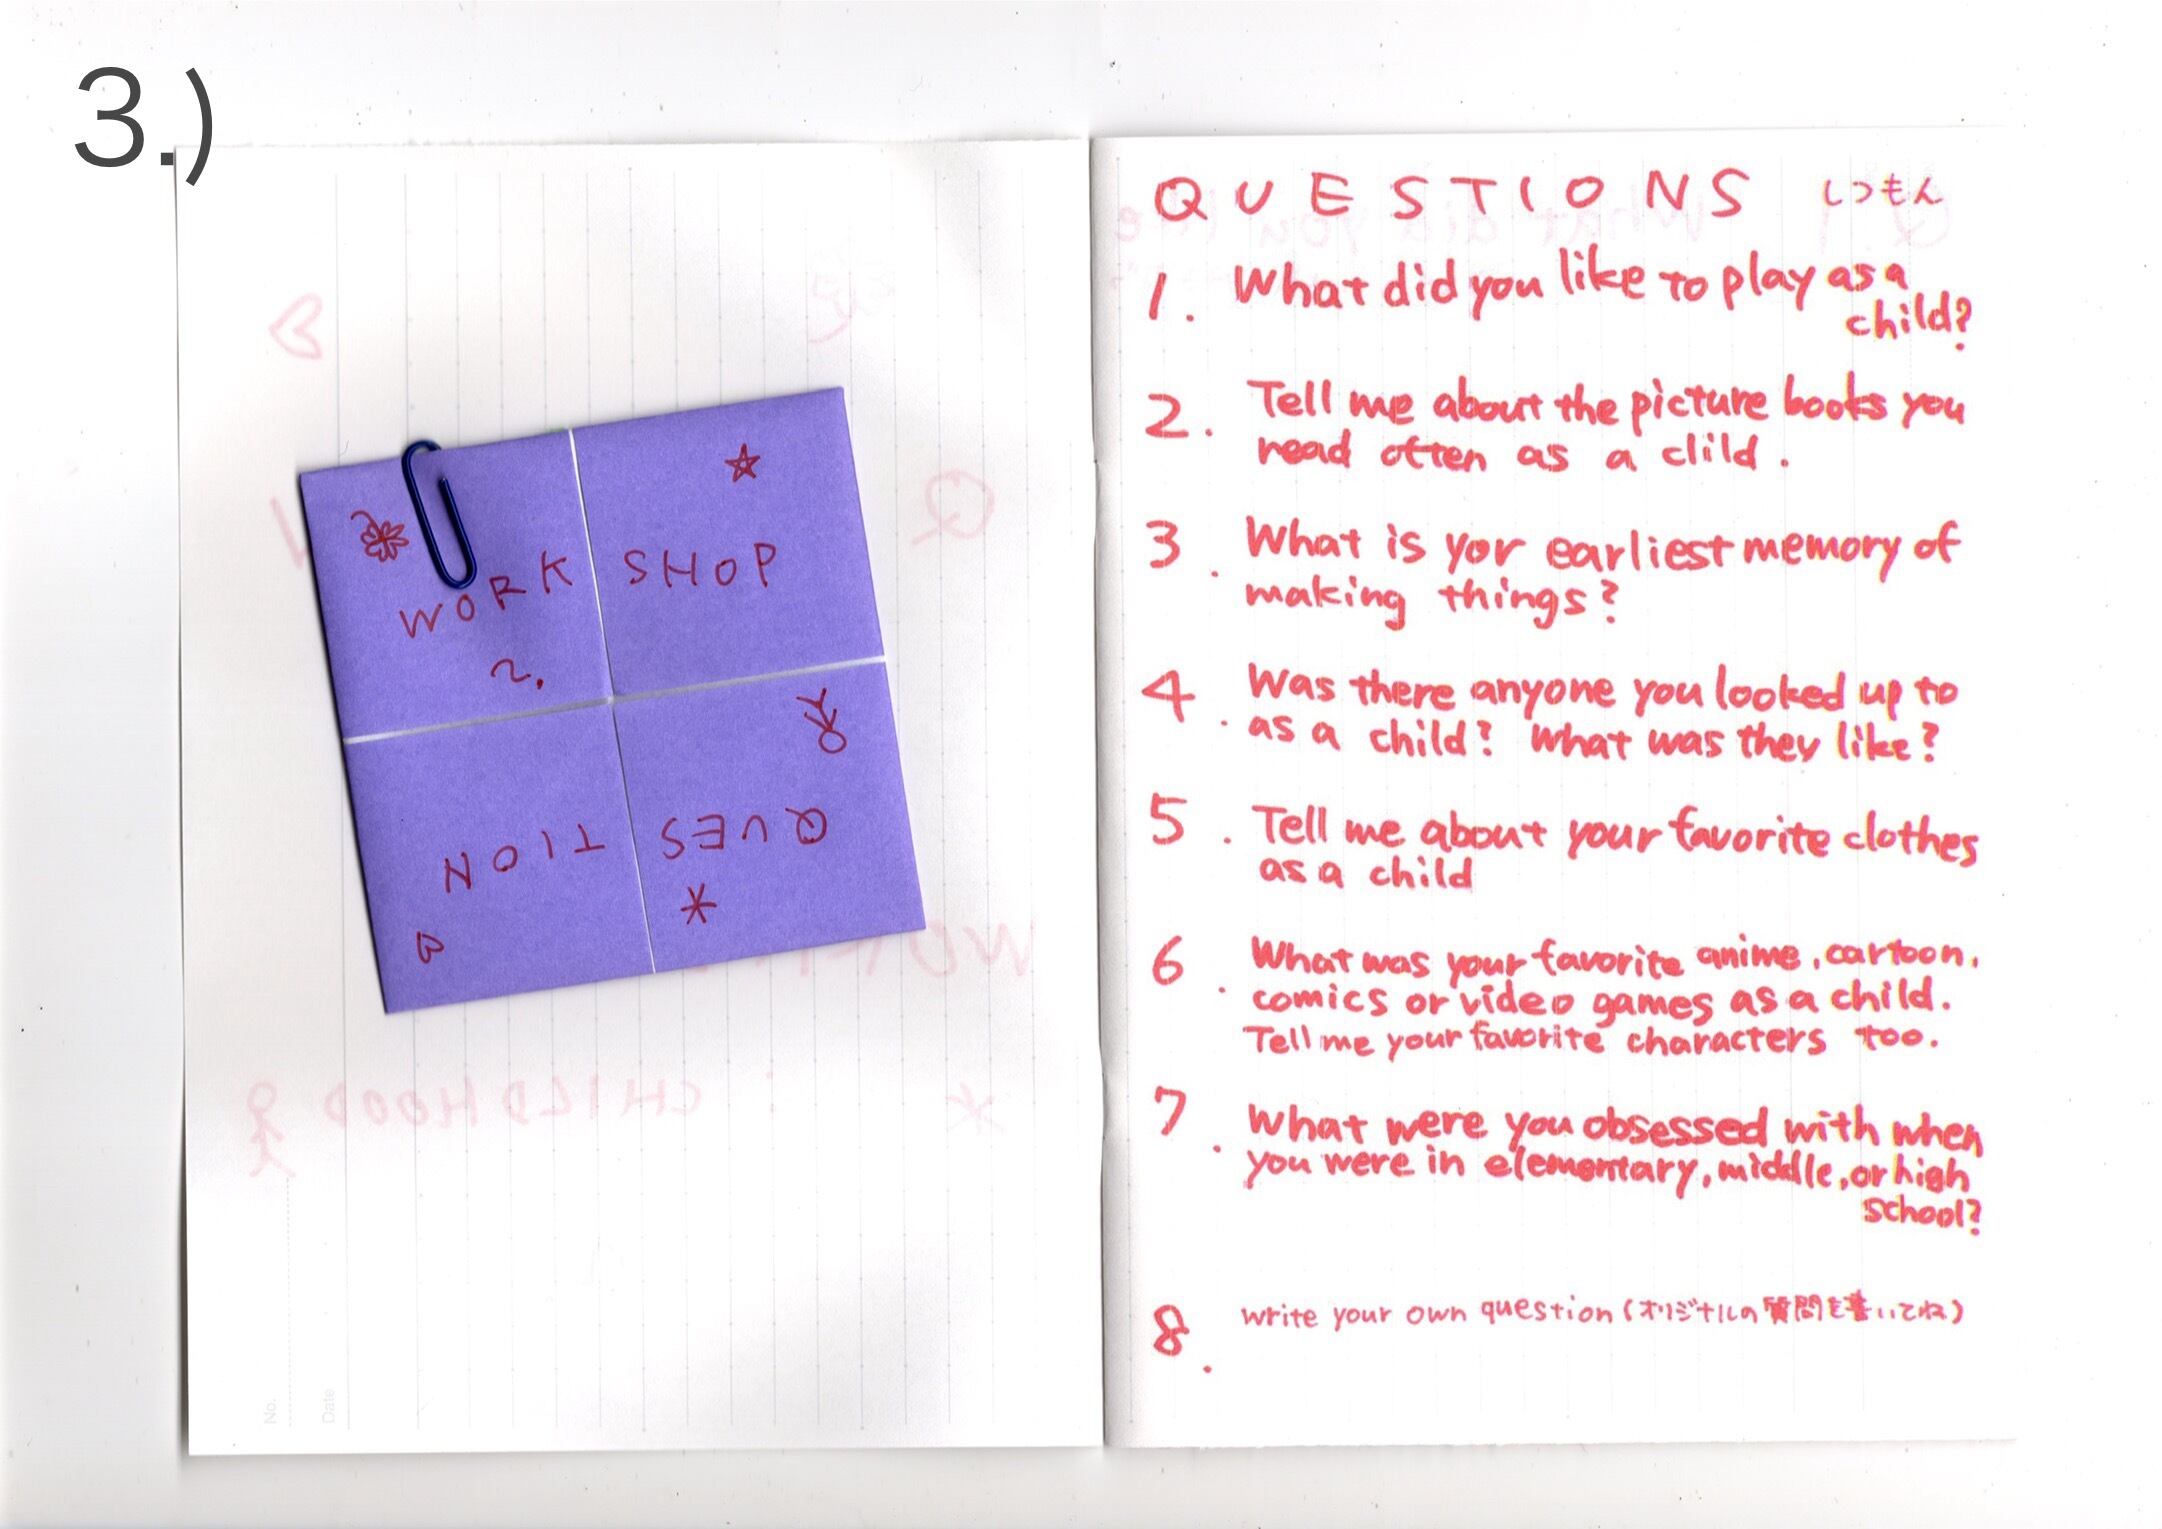 3.)
WORK SHOP
2.
QUES TION
No.
Date
WORK
: CHILDHOOD
QUESTIONS しつもん
1. What did you like to play as a
child?
2. Tell me about the picture books you
read often as a clild.
3. What is yor earliest memory of
making things?
4. Was there anyone you looked up to
as a child? What was they like?
5. Tell me about your favorite clothes
as a child
6. What was your favorite anime, cartoon,
comics or video games as a child.
Tell me your favorite characters too.
7. What were you obsessed with when
you were in elementary, middle, or high
school?
8. write your own question (オリジナルの質問を書いてね)